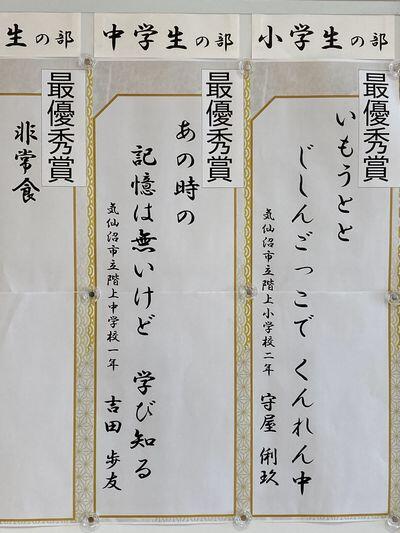 小学生の部
最優秀賞
いもうとと
じしんごっこで くんれん中
気仙沼市立階上小学校二年 守屋 俐玖
中学生の部
最優秀賞
あの時の
記憶は無いけど 学び知る
気仙沼市立階上中学校一年 吉田 歩友
生の部
最優秀賞
非常食